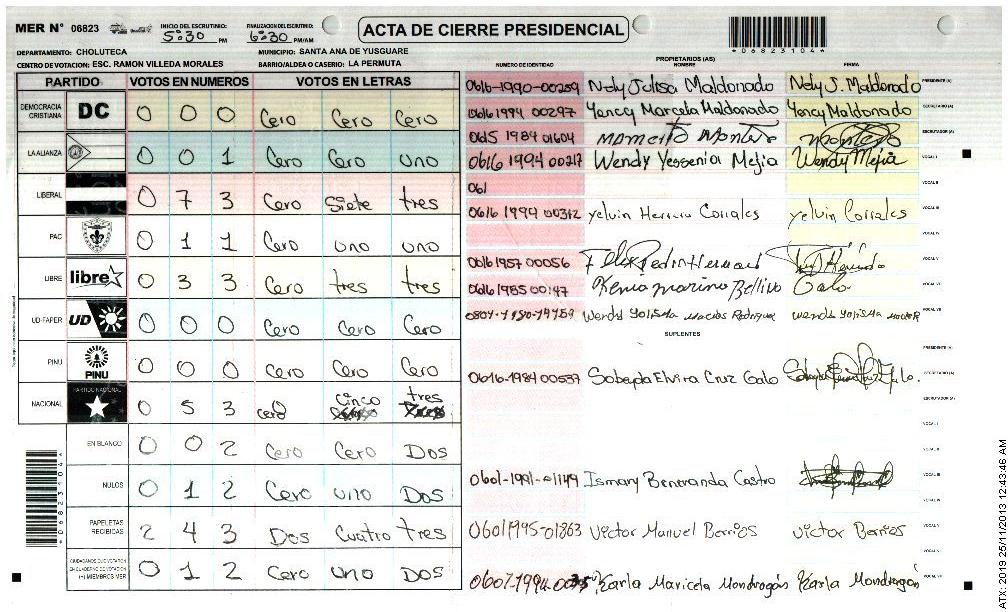 MER Nº 06823 INICIO DEL ESCRUTINIO: 5:30 PM FINALIZACION DEL ESCRUTINIO: 6:30 PM/AM
ACTA DE CIERRE PRESIDENCIAL
*06823104*
DEPARTAMENTO: CHOLUTECA MUNICIPIO: SANTA ANA DE YUSGUARE
CENTRO DE VOTACION: ESC. RAMON VILLEDA MORALES BARRIO/ALDEA O CASERIO: LA PERMUTA
PARTIDO VOTOS EN NUMEROS VOTOS EN LETRAS
DEMOCRACIA CRISTIANA DC 0 0 0 Cero Cero Cero
LA ALIANZA 0 0 1 Cero Cero uno
LIBERAL 0 7 3 Cero Siete tres
PAC 0 1 1 Cero uno uno
LIBRE libre 0 3 3 Cero tres tres
UD-FAPER UD 0 0 0 Cero Cero Cero
PINU PINU 0 0 0 Cero Cero Cero
NACIONAL PARTIDO NACIONAL 0 5 3 cero cinco tres
EN BLANCO 0 0 2 Cero Cero Dos
NULOS 0 1 2 Cero uno Dos
PAPELETAS RECIBIDAS 2 4 3 Dos Cuatro tres
CIUDADANOS QUE VOTARON EN CUADERNO DE VOTACION (+) MIEMBROS MER 0 1 2 Cero uno Dos
*06823104*
PROPIETARIOS (AS)
NUMERO DE IDENTIDAD NOMBRE FIRMA
0616-1990-00259 Nely Julisa Maldonado Nely J. Maldonado PRESIDENTE (A)
0616 1994 00297 Yency Marcela Maldonado Yency Maldonado SECRETARIO (A)
0615 1984 01604 ESCRUTADOR (A)
0616 1994 00217 Wendy Yessenia Mejia Wendy Mejia VOCAL I
061 VOCAL II
0616 1994 00312 yelvin Herrera Corrales yelvin Corrales VOCAL III
VOCAL IV
0616 1957 00056 VOCAL V
0616 1985 00147 Galo VOCAL VI
Wendy Macias Rodriguez VOCAL VII
SUPLENTES
PRESIDENTE (A)
0616-1984 00537 Sobeyda Elvira Cruz Galo SECRETARIO (A)
ESCRUTADOR (A)
VOCAL I
VOCAL II
0601-1991-01149 Ismary Beneranda Castro VOCAL III
VOCAL IV
0601 1995-01863 Victor Manuel Berrios Victor Berrios VOCAL V
VOCAL VI
Karla Maricela Mondragón Karla Mondragón VOCAL VII
ATX: 2019 25/11/2013 12:43:46 AM